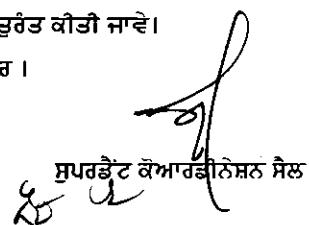 ਤੁਰੰਤ ਕੀਤੀ ਜਾਵੇ।
ਰ ।
ਸੁਪਰਡੈਂਟ ਕੋਆਰਡੀਨੇਸ਼ਨ ਸੈਲ